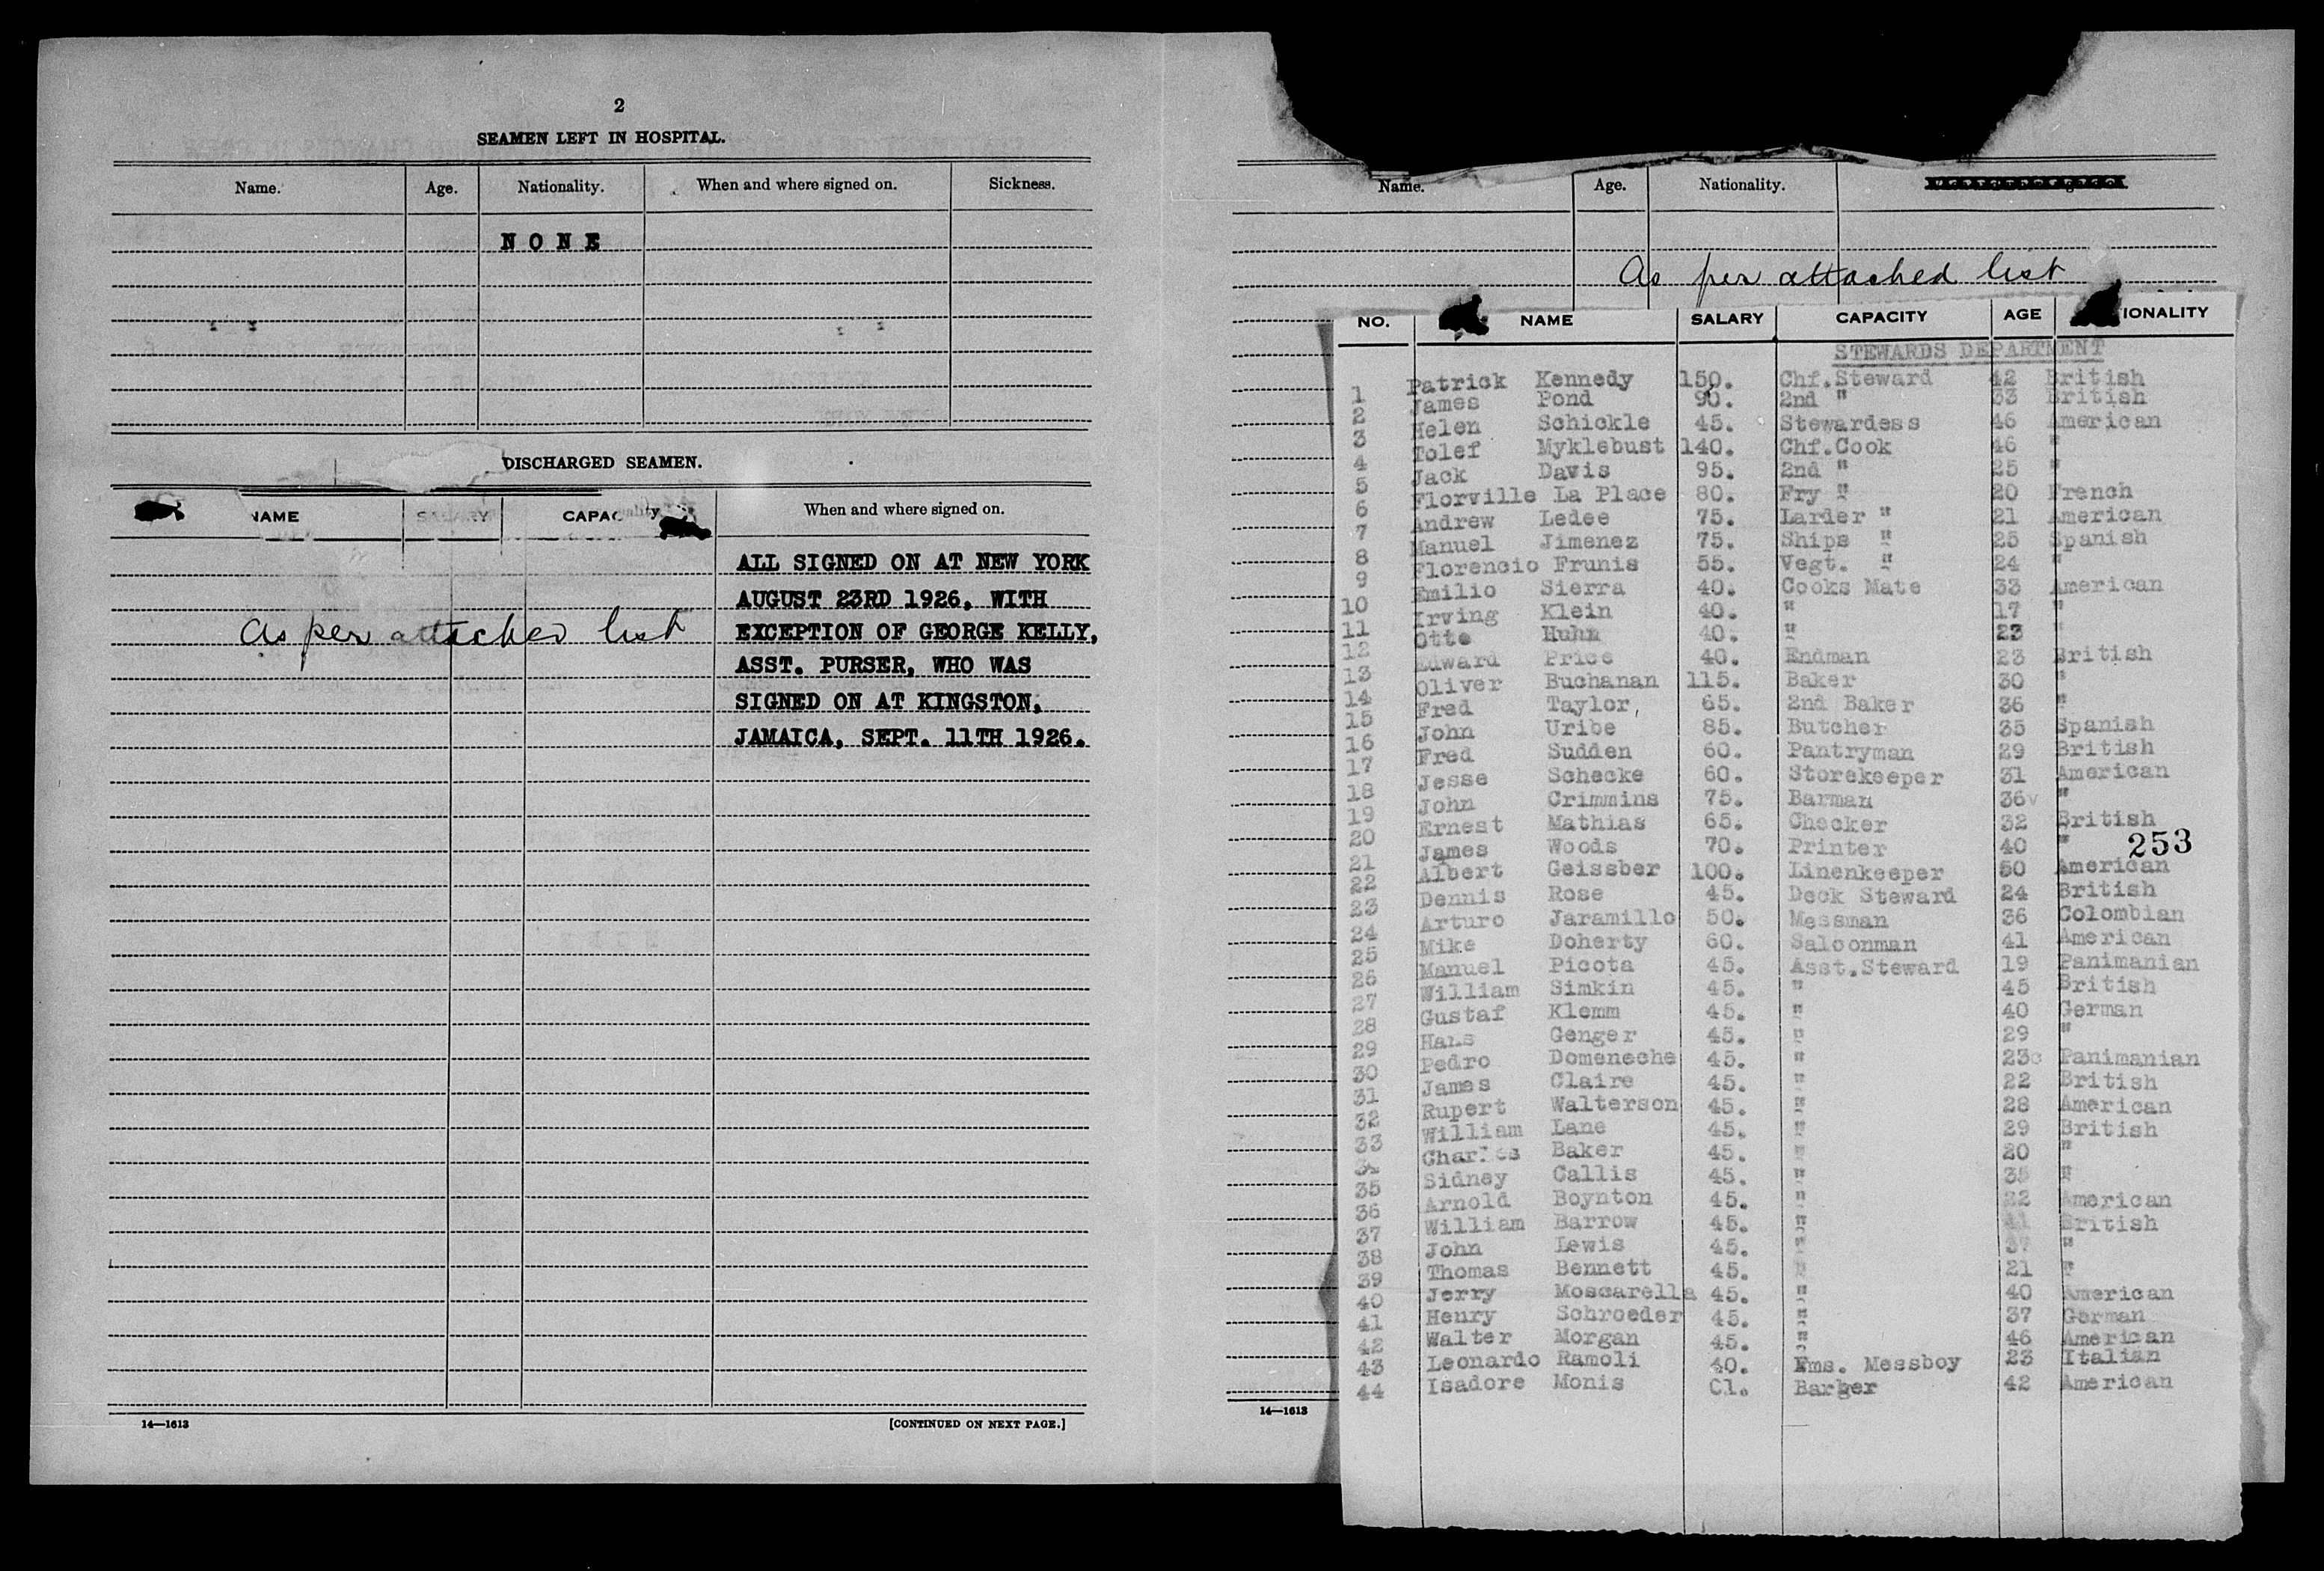 2
SEAMEN LEFT IN HOSPITAL.
Name. Age. Nationality. When and where signed on. Sickness.
NONE
DISCHARGED SEAMEN.
NAME SALARY CAPAC When and where signed on.
ALL SIGNED ON AT NEW YORK
AUGUST 23RD 1926, WITH
As per attached list EXCEPTION OF GEORGE KELLY,
ASST. PURSER, WHO WAS
SIGNED ON AT KINGSTON,
JAMAICA, SEPT. 11TH 1926.
14—1613 [CONTINUED ON NEXT PAGE.]
Name. Age. Nationality.
As per attached list
NO. NAME SALARY CAPACITY AGE IONALITY
STEWARDS DEPARTMENT
1 Patrick Kennedy 150. Chf.Steward 42 British
2 James Pond 90. 2nd " 33 British
3 Helen Schickle 45. Stewardess 46 American
4 Tolef Myklebust 140. Chf.Cook 46 "
5 Jack Davis 95. 2nd " 25 "
6 Florville La Place 80. Fry " 20 French
7 Andrew Ledee 75. Larder " 21 American
8 Manuel Jimenez 75. Ships " 25 Spanish
9 Florencio Frunis 55. Vegt. " 24 "
10 Emilio Sierra 40. Cooks Mate 33 American
11 Irving Klein 40. " 17 "
12 Otto Huhn 40. " 23 "
13 Edward Price 40. Endman 23 British
14 Oliver Buchanan 115. Baker 30 "
15 Fred Taylor, 65. 2nd Baker 36 "
16 John Uribe 85. Butcher 35 Spanish
17 Fred Sudden 60. Pantryman 29 British
18 Jesse Schecke 60. Storekeeper 31 American
19 John Crimmins 75. Barman 36 "
20 Ernest Mathias 65. Checker 32 British
21 James Woods 70. Printer 40 " 253
22 Albert Geissber 100. Linenkeeper 50 American
23 Dennis Rose 45. Deck Steward 24 British
24 Arturo Jaramillo 50. Messman 36 Colombian
25 Mike Doherty 60. Saloonman 41 American
26 Manuel Picota 45. Asst.Steward 19 Panimanian
27 William Simkin 45. " 45 British
28 Gustaf Klemm 45. " 40 German
29 Hans Genger 45. " 29 "
30 Pedro Domeneche 45. " 23 Panimanian
31 James Claire 45. " 22 British
32 Rupert Walterson 45. " 28 American
33 William Lane 45. " 29 British
34 Charles Baker 45. " 20 "
35 Sidney Callis 45. " 35 "
36 Arnold Boynton 45. " 22 American
37 William Barrow 45. " 41 British
38 John Lewis 45. " 37 "
39 Thomas Bennett 45. " 21 "
40 Jerry Moscarella 45. " 40 American
41 Henry Schroeder 45. " 37 German
42 Walter Morgan 45. " 46 American
43 Leonardo Ramoli 40. Fms. Messboy 23 Italian
44 Isadore Monis Cl. Barber 42 American
14—1613